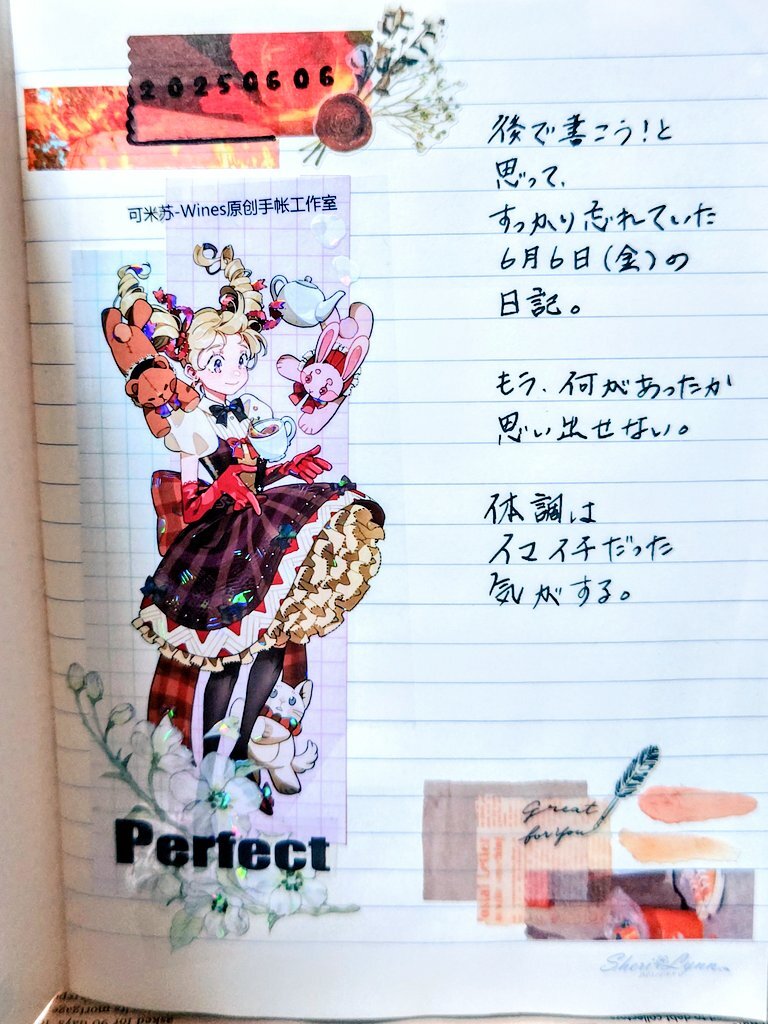 20250606
後で書こう!と
思って、
すっかり忘れていた
6月6日(金)の
日記。
もう、何があったか
思い出せない。
体調は
イマイチだった
気がする。
可米苏-Wines原创手帐工作室
Perfect
Great
for you
Sheri Lynn